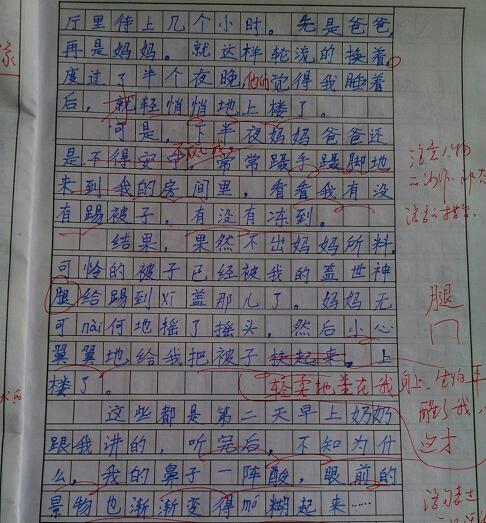 厅里待上几个小时。先是爸爸,
再是妈妈。就这样轮流的换着。
度过了半个夜晚,他们觉得我睡着
后,就轻悄悄地上楼了。
可是,下半夜妈妈爸爸还
是不得安 常常蹑手蹑脚地
来到我的房间里,看看我有没
有踢被子,有没有冻到。
结果,果然不出妈妈所料。
可怜的被子已经被我的盖世神
腿给踢到xī盖那儿了。妈妈无
可nài何地摇了摇头,然后小心
翼翼地给我把被子扶起来。上
楼了。
轻柔地盖在我身上,生怕弄
醒了我,
这才
这些都是第二天早上奶奶
跟我讲的,听完后,不知为什
么,我的鼻子一阵酸,眼前的
景物也渐渐变得mó糊起来……
腿